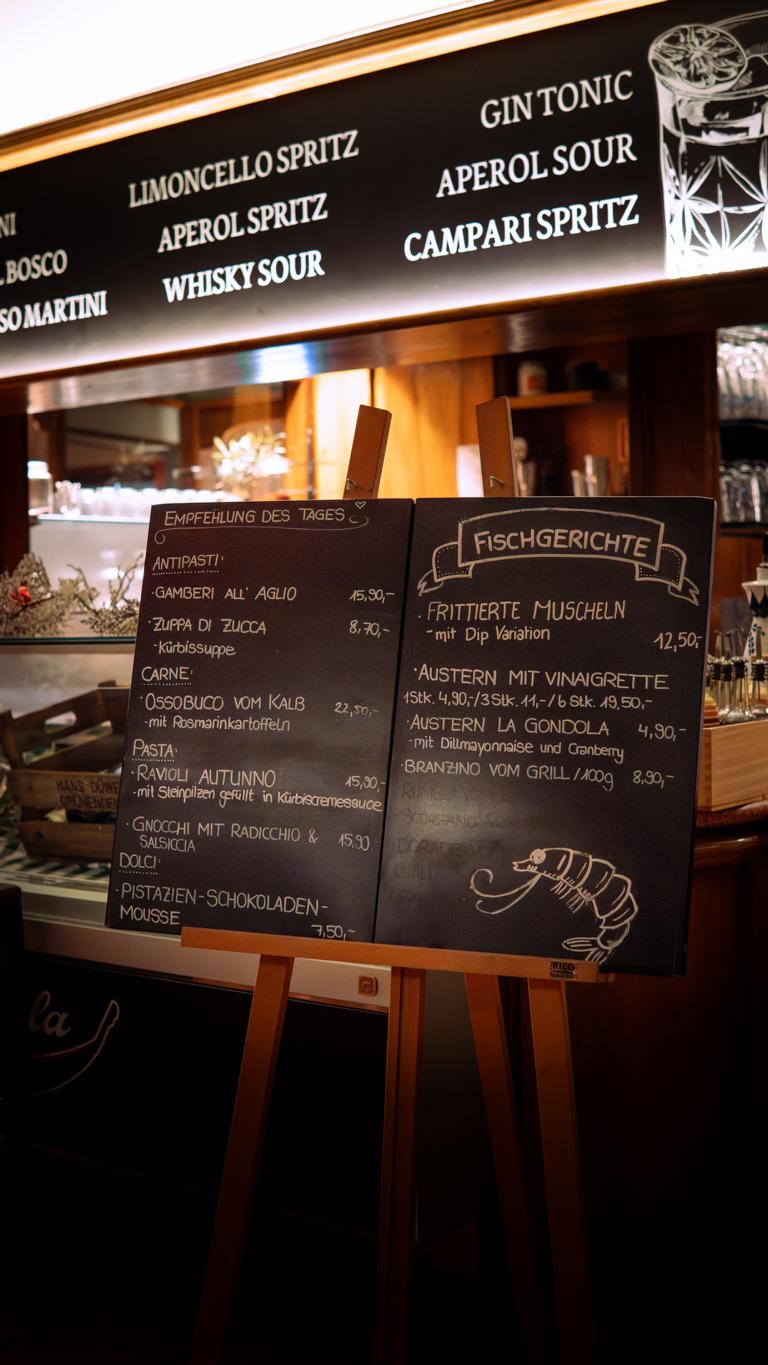 GIN TONIC
LIMONCELLO SPRITZ
APEROL SOUR
NI
APEROL SPRITZ
CAMPARI SPRITZ
L BOSCO
WHISKY SOUR
SO MARTINI
EMPFEHLUNG DES TAGES
ANTIPASTI:
·GAMBERI ALL' AGLIO 15,90,-
·ZUPPA DI ZUCCA 8,70,-
-Kürbissuppe
CARNE:
·OSSOBUCO VOM KALB 22,50,-
-mit Rosmarinkartoffeln
PASTA:
·RAVIOLI AUTUNNO 15,90,-
-mit Steinpilzen gefüllt in Kürbiscremesauce
·GNOCCHI MIT RADICCHIO & 15,90,-
SALSICCIA
DOLCI:
·PISTAZIEN-SCHOKOLADEN-
MOUSSE
7,50,-
FISCHGERICHTE
·FRITTIERTE MUSCHELN
-mit Dip Variation 12,50,-
·AUSTERN MIT VINAIGRETTE
1Stk. 4,90,-/3Stk. 11,-/6 Stk. 19,50,-
·AUSTERN LA GONDOLA 4,90,-
-mit Dillmayonnaise und Cranberry
·BRANZINO VOM GRILL /100g 8,90,-
RICO
HANS
la